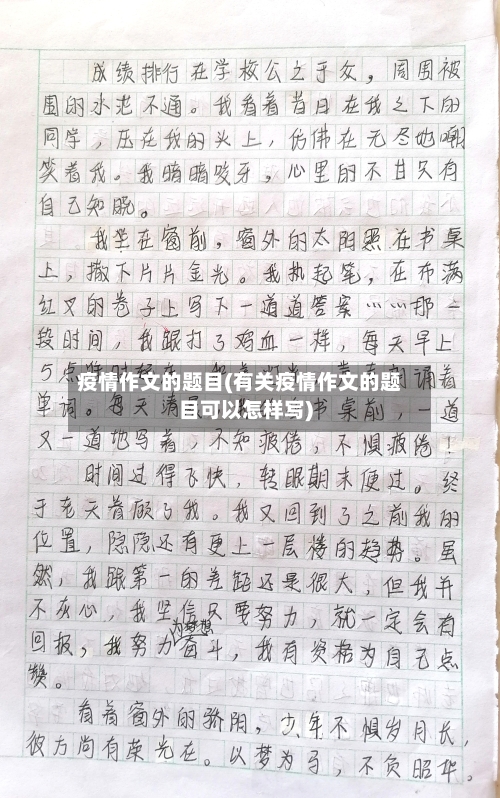 成绩排行在学校公之于众，周围被
围的水泄不通。我看着昔日在我之下的
同学，压在我的头上，仿佛在无尽地嘲
笑着我。我暗暗咬牙，心里的不甘只有
自己知晓。
我坐在窗前，窗外的太阳照在书桌
上，撒下片片金光。我执起笔，在布满
红叉的卷子上写下一道道答案……那一
段时间，我跟打了鸡血一样，每天早上
5点 诵着
疫情作文的题目(有关疫情作文的题
单词。每天清 书桌前，一道
目可以怎样写)
又一道地写着，不知疲倦，不惧疲倦！
时间过得飞快，转眼期末便过。终
于老天眷顾了我。我又回到了之前我的
位置，隐隐还有更上一层楼的趋势。虽
然，我跟第一的差距还是很大，但我并
不灰心，我坚信只要努力，就一定会有
为梦想
回报，我努力奋斗，我有资格为自己点
赞。
看着窗外的骄阳，少年不惧岁月长，
彼方尚有荣光在。以梦为马，不负韶华。